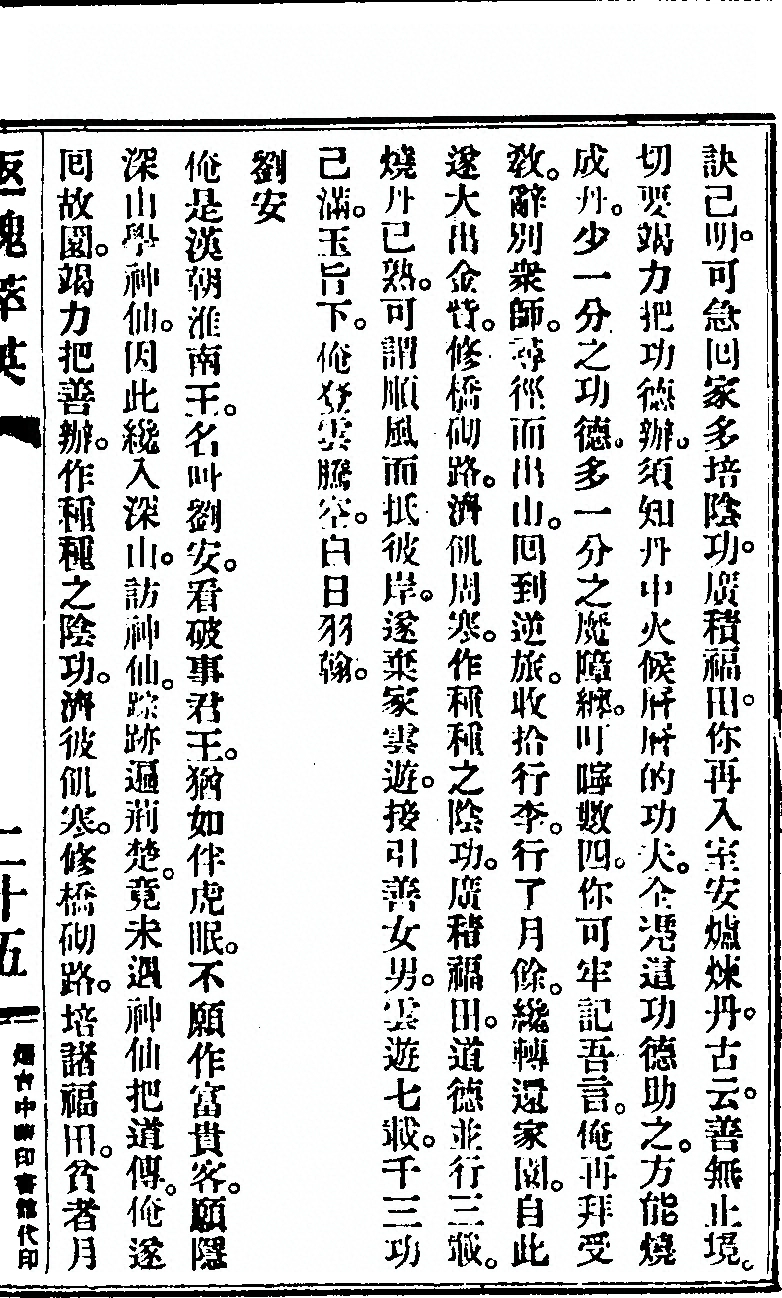 訣已明。可急回家多培陰功。廣積福田。你再入室安爐煉丹。古云。善無止境。
切要竭力把功德辦。須知丹中火候層層的功夫。全憑這功德助之。方能燒
成丹。少一分之功德。多一分之魔障纏。叮嚀數四。你可牢記吾言。俺再拜受
敎。辭別衆師。尋徑而出山。回到逆旅。收拾行李。行了月餘。纔轉還家園。自此
遂大出金貲。修橋砌路。濟飢周寒。作種種之陰功。廣積福田。道德並行三載。
燒丹已熟。可謂順風而抵彼岸。遂棄家雲遊。接引善女男。雲遊七載。千三功
已滿。玉旨下。俺登雲騰空。白日羽翰。
劉安
俺是漢朝淮南王。名叫劉安。看破事君王。猶如伴虎眠。不願作富貴客。願隱
深山學神仙。因此纔入深山。訪神仙。踪跡遍荊楚。竟未遇神仙把道傳。俺遂
回故園。竭力把善辦。作種種之陰功。濟彼飢寒。修橋砌路。培諸福田。貧者月
返魂萃英
二十五
煙台中華印書館代印